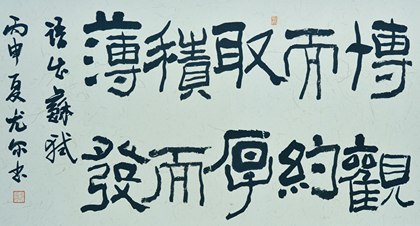 博觀
而約
取厚
積而
薄發
語出蘇軾
丙申夏尤尔书